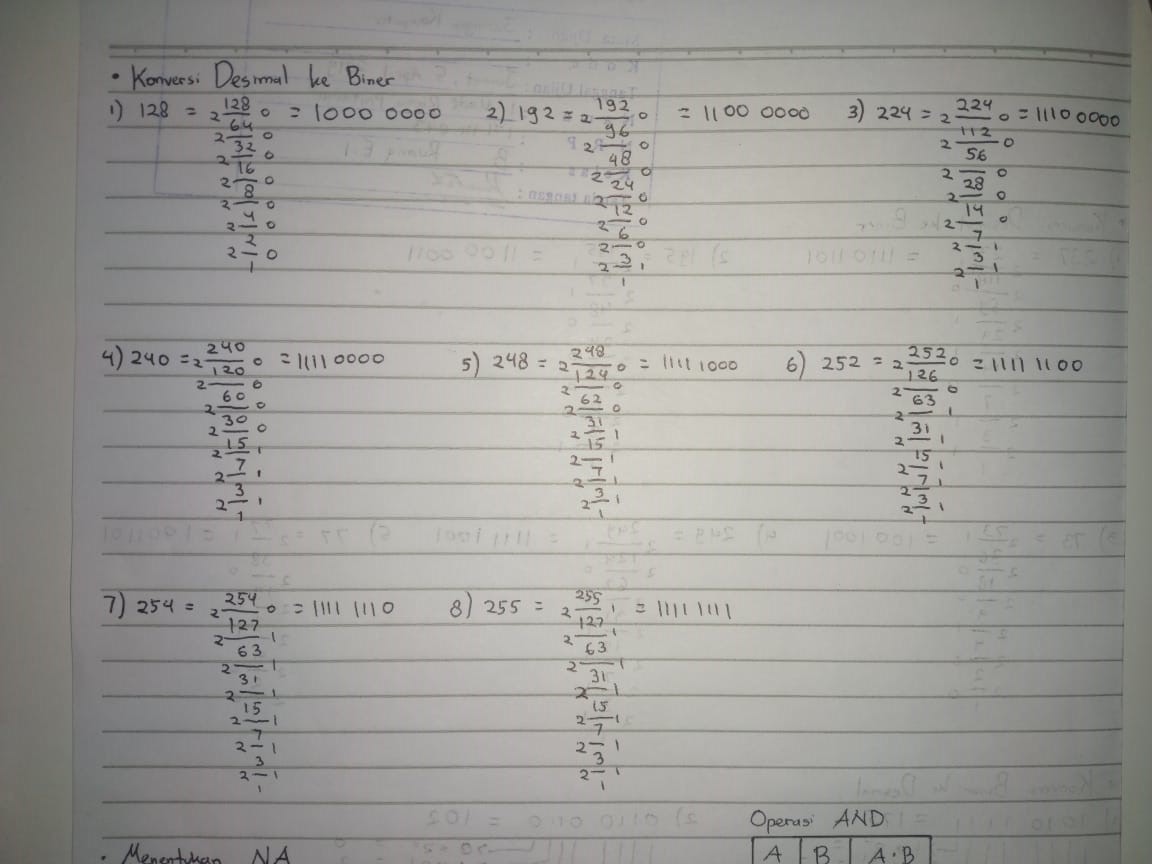 • Konversi Desimal ke Biner
1) 128 = 2 128 0 = 1000 0000
2 64 0
2 32 0
2 16 0
2 8 0
2 4 0
2 2 0
1
2) 192 = 2 192 0 = 1100 0000
2 96 0
2 48 0
2 24 0
2 12 0
2 6 0
2 3 1
1
3) 224 = 2 224 0 = 1110 0000
2 112 0
2 56 0
2 28 0
2 14 0
2 7 1
2 3 1
1
4) 240 = 2 240 0 = 1111 0000
2 120 0
2 60 0
2 30 0
2 15 1
2 7 1
2 3 1
1
5) 248 = 2 248 0 = 1111 1000
2 124 0
2 62 0
2 31 1
2 15 1
2 7 1
2 3 1
1
6) 252 = 2 252 0 = 1111 1100
2 126 0
2 63 1
2 31 1
2 15 1
2 7 1
2 3 1
1
7) 254 = 2 254 0 = 1111 1110
2 127 1
2 63 1
2 31 1
2 15 1
2 7 1
2 3 1
1
8) 255 = 2 255 1 = 1111 1111
2 127 1
2 63 1
2 31 1
2 15 1
2 7 1
2 3 1
1
• Menentukan NA
Operasi AND
A B A·B